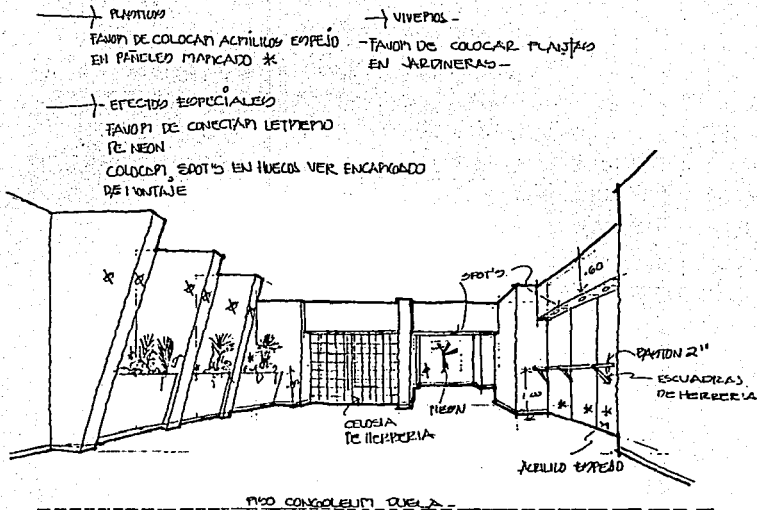 PLASTICOS
FAVOR DE COLOCAR ACRILICOS ESPEJO
EN PAÑELES MARCADO *
VIVEROS -
- FAVOR DE COLOCAR PLANTAS
EN JARDINERAS -
EFECTOS ESPECIALES
FAVOR DE CONECTAR LETRERO
DE NEON
COLOCAR SPOT'S EN HUECOS VER ENCARGADO
DE MONTAJE
SPOT'S
.60
BASTON 2"
ESCUADRAS
DE HERRERIA
NEON
CELOSIA
DE HERRERIA
ACRILICO ESPEJO
PISO CONGOLEUM DUELA -